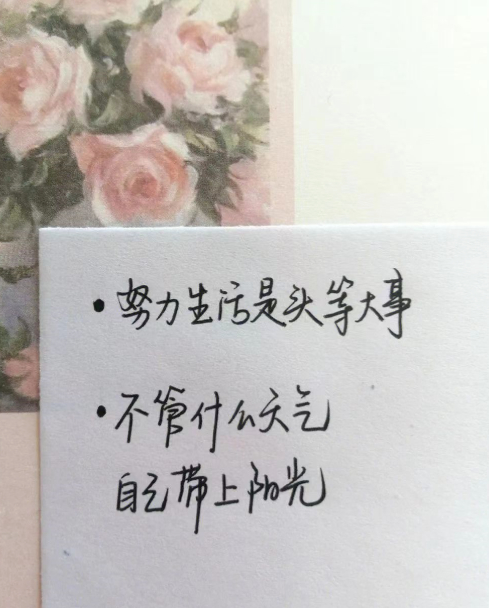 • 努力生活是头等大事
• 不管什么天气
自己带上阳光